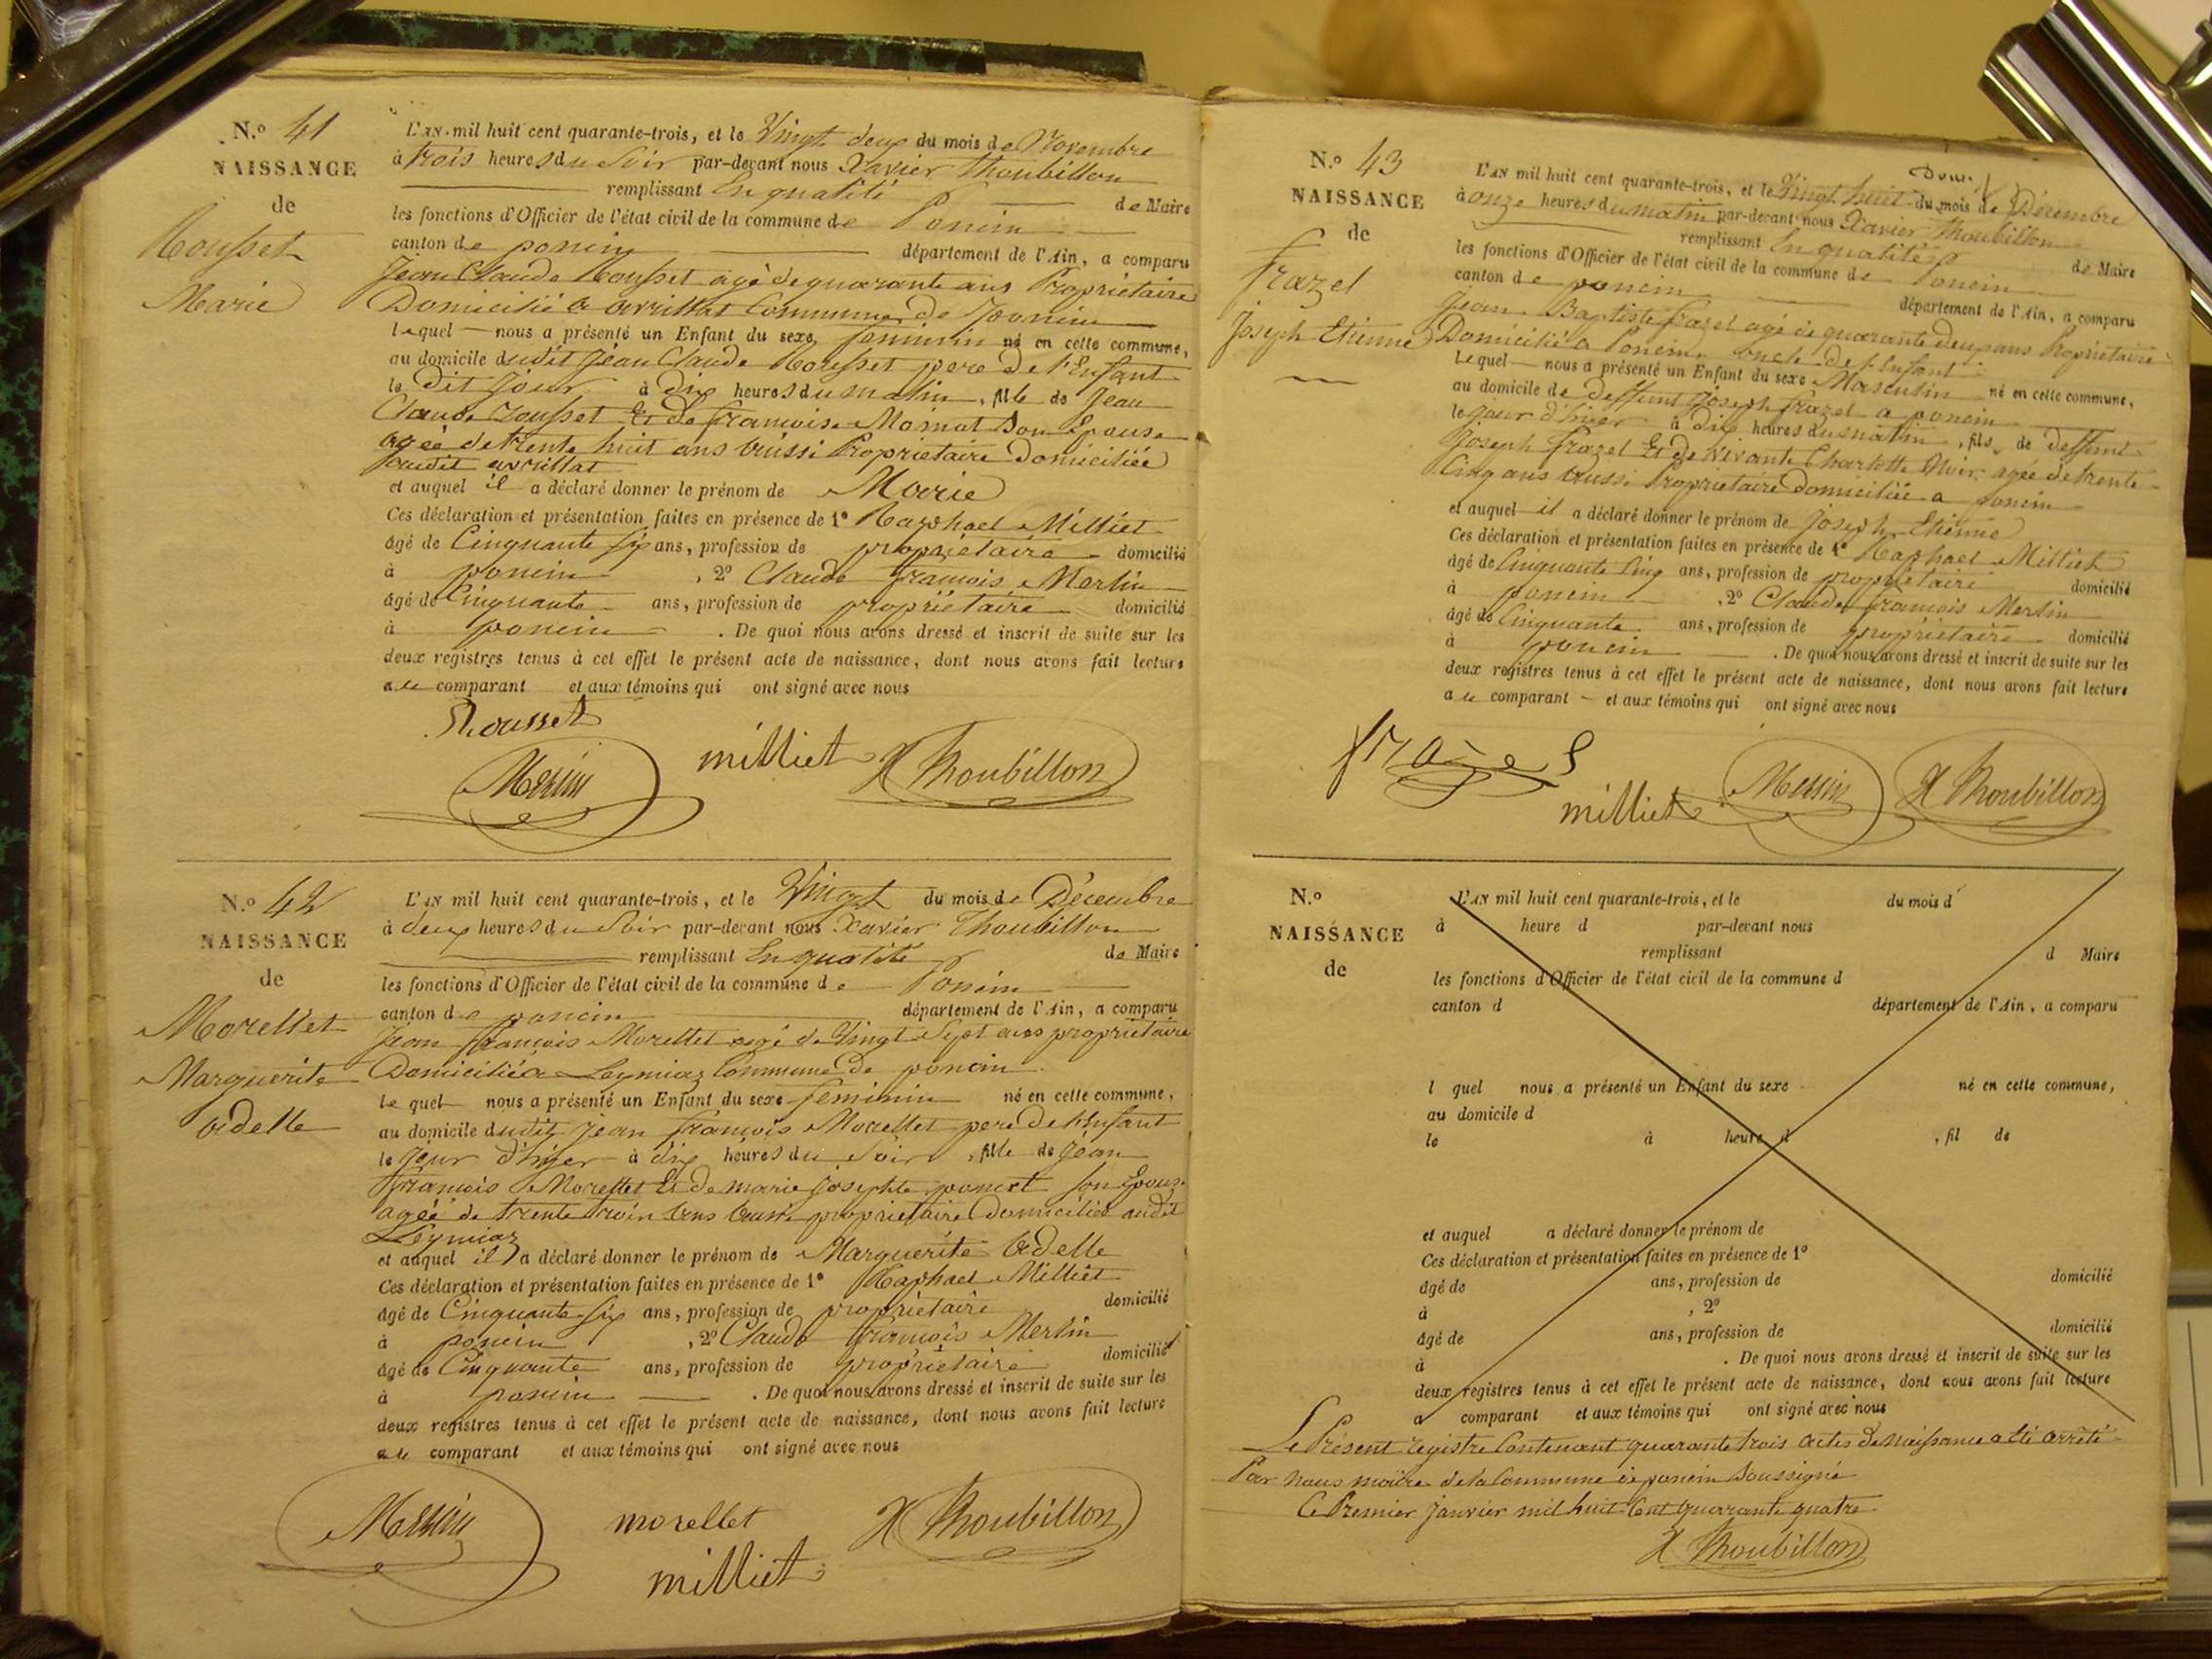 N.o 41
NAISSANCE
de
Rousset
Marie
L'AN mil huit cent quarante-trois, et le Vingt deux du mois de Novembre
à trois heures du Soir par-devant nous Xavier Thoubillon
remplissant En qualité de Maire
les fonctions d'Officier de l'état civil de la commune de Poncin
canton de poncin département de l'Ain, a comparu
Jean Claude Rousset agé de quarante ans Propriétaire
Domicilié a avrillat Commune de Poncin
lequel nous a présenté un Enfant du sexe féminin né en cette commune,
au domicile dudit Jean Claude Rousset pere de l'Enfant
le dit jour à Dix heures du matin, fille de Jean
Claude rousset Et de francoise Mornat Son Epouse
agée de trente huit ans aussi Propriétaire Domiciliée
audit avrillat
et auquel il a déclaré donner le prénom de Marie
Ces déclaration et présentation faites en présence de 1º Raphael Milliet
âgé de Cinquante six ans, profession de propriétaire domicilié
à poncin, 2º Claude francois Merlin
âgé de Cinquante ans, profession de propriétaire domicilié
à poncin. De quoi nous avons dressé et inscrit de suite sur les
deux registres tenus à cet effet le présent acte de naissance, dont nous avons fait lecture
au comparant et aux témoins qui ont signé avec nous
Rousset
milliet X Thoubillon
N.o 42
NAISSANCE
de
Morellet
Marguerite
adelle
L'AN mil huit cent quarante-trois, et le Vingt du mois de Décembre
à deux heures du Soir par-devant nous Xavier Thoubillon
remplissant En qualité de Maire
les fonctions d'Officier de l'état civil de la commune de Poncin
canton de poncin département de l'Ain, a comparu
Jean francois Morellet agé de Vingt Sept ans propriétaire
Domicilié a Leymiaz Commune de poncin
le quel nous a présenté un Enfant du sexe féminin né en cette commune,
au domicile dudit Jean francois Morellet pere de l'Enfant
le jour d'hyer à dix heures du Soir, fille de Jean
francois Morellet Et de marie josephte poncet son Epouse
agée de trente trois ans aussi propriétaire Domiciliée audit
Leymiaz
et auquel il a déclaré donner le prénom de Marguerite adelle
Ces déclaration et présentation faites en présence de 1º Raphael Milliet
âgé de Cinquante six ans, profession de propriétaire domicilié
à poncin, 2º Claude francois Merlin
âgé de Cinquante ans, profession de propriétaire domicilié
à poncin. De quoi nous avons dressé et inscrit de suite sur les
deux registres tenus à cet effet le présent acte de naissance, dont nous avons fait lecture
au comparant et aux témoins qui ont signé avec nous
morellet X Thoubillon
milliet
N.o 43
NAISSANCE
de
frazel
Joseph Etienne
L'AN mil huit cent quarante-trois, et le Vingt huit du mois de Décembre
à onze heures du matin par-devant nous Xavier Thoubillon
remplissant En qualité de Maire
les fonctions d'Officier de l'état civil de la commune de Poncin
canton de poncin département de l'Ain, a comparu
Jean Baptiste frazel agé de quarante deux ans Propriétaire
Domicilié a Poncin oncle de l'Enfant
Lequel nous a présenté un Enfant du sexe Masculin né en cette commune,
au domicile de deffunt Joseph frazel a poncin
le jour d'hier à dix heures du matin, fils de deffunt
Joseph frazel Et de vivante Charlotte Noir agée de trente
Cinq ans aussi Propriétaire domiciliée a poncin
et auquel il a déclaré donner le prénom de Joseph Etienne
Ces déclaration et présentation faites en présence de 1º Raphael Milliet
âgé de Cinquante Cinq ans, profession de propriétaire domicilié
à poncin, 2º Claude francois Merlin
âgé de Cinquante ans, profession de propriétaire domicilié
à poncin. De quoi nous avons dressé et inscrit de suite sur les
deux registres tenus à cet effet le présent acte de naissance, dont nous avons fait lecture
au comparant et aux témoins qui ont signé avec nous
frazel
milliet X Thoubillon
N.o
NAISSANCE
de
L'AN mil huit cent quarante-trois, et le du mois d
à heure d par-devant nous
remplissant d Maire
les fonctions d'Officier de l'état civil de la commune d
canton d département de l'Ain, a comparu
l quel nous a présenté un Enfant du sexe né en cette commune,
au domicile d
le à heure d, fil de
et auquel a déclaré donner le prénom de
Ces déclaration et présentation faites en présence de 1º
âgé de ans, profession de domicilié
à, 2º
âgé de ans, profession de domicilié
à. De quoi nous avons dressé et inscrit de suite sur les
deux registres tenus à cet effet le présent acte de naissance, dont nous avons fait lecture
a comparant et aux témoins qui ont signé avec nous
Le Présent registre Contenant quarante trois actes de naissance a été arrêté
Par nous maire de la Commune de poncin Soussigné
Ce Premier janvier mil huit Cent quarante quatre
X Thoubillon